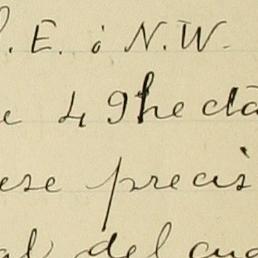 E. i N.W.
e 49 hectá
ese precis
al del cua